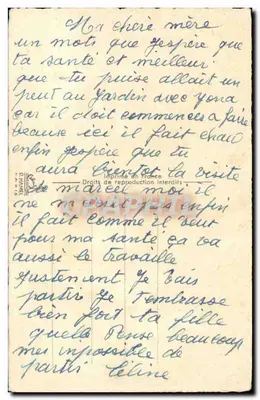 Ma chere mère
un mots que jespère que
ta santé et meilleur
que tu puise allait un
peut au Jardin avec
car il doit commences a faire
beause ici il fait chaud
enfin jespère que tu
aura bientot la visite
de marcel moi il
ne m'ecrit pas enfin
il fait comme il veut
pour ma santé ça va
aussi le travaille
justement Je vais
partir Je t'embrasse
bien fort ta fille
quelle Pense beaucoup
mes inpossible de
partir Céline
de reproduction interdits